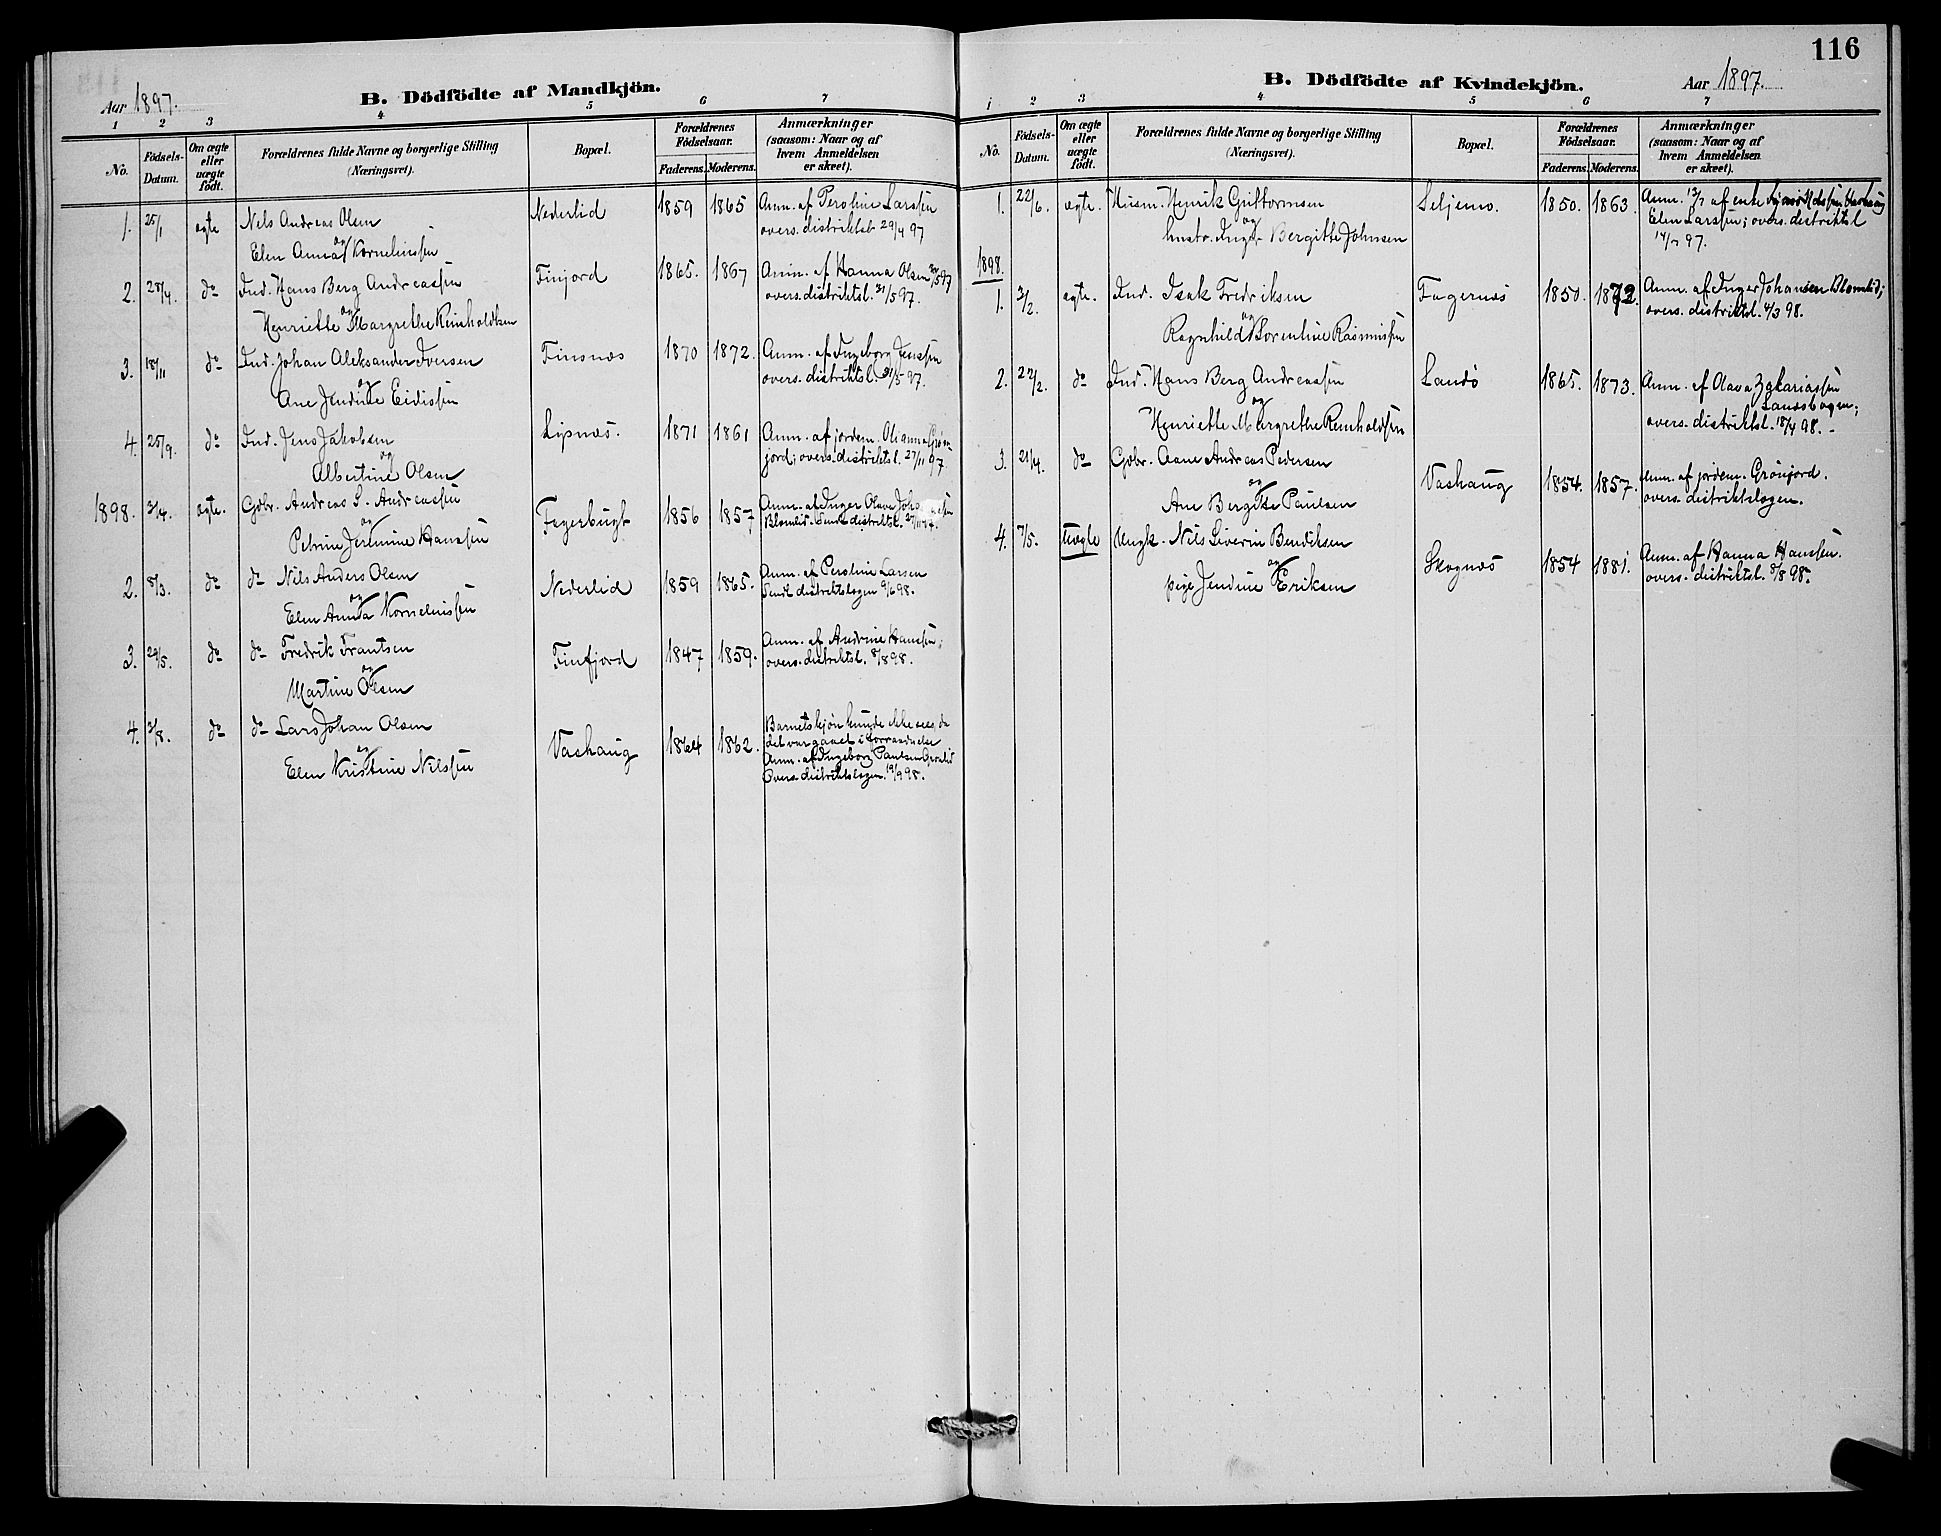 Aar 1897.
B. Dödfödte af Mandkjön.
1 2 3 4 5 6 7
No.
Födsels-
Datum.
Om ægte
eller
uægte
födt.
Forældrenes fulde Navne og borgerlige Stilling
(Næringsvei).
Bopæl.
Forældrenes
Födselsaar.
Faderens. Moderens.
Anmærkninger
(saasom: Naar og af
hvem Anmeldelsen
er skeet).
1. 25/1 ægte Nels Andreas Olsen Nederlid 1859 1865 Anm. af Peroline Larssen
og overs. distriktsl. 29/4 97
Elen Anna Kornelinssen
2. 28/4. do Ind. Hans Berg Andreassen Finjord 1865. 1867 Anm. af Hanna Olsen
og overs. distriktsl. 31/5 97.
Henriette Margrethe Reinholdtsen
3. 18/11 do Ind. Johan Aleksander Iversen Finsnæs 1870 1872. Anm. af Ingeborg Jenssen
og overs. distriktsl. 31/5 97.
Ane Jendine Eidissen
4. 25/9. do Ind. Jens Jakobsen Lysnæs. 1871 1861 Anm. af jordem. Olianna Grøn
og jord; overs. distriktsl. 27/11 97
Albertine Olsen
1898. 3/4. ægte. Gbr. Andreas S. Andreassen Fagerbugt 1856 1857 Anm. af Inger Olava
og Blomlid. Sendt distriktsl.
Petrine Jeremine Hanssen
2. 8/3. do do Nils Anders Olsen Nederlid 1859 1865. Anm. af Peroline Larsen
og Sendt distriktslægen 9/6 98.
Elen Anna Kornelinssen
3. 29/5. do do Fredrik Frantsen Finfjord 1847 1859. Anm. af Andrine Hanssen;
og overs. distriktsl. 8/8 98.
Martine Olsen
4. 3/8. do do Lars Johan Olsen Vashaug 1864 1862. Barnets kjön kunde ikke sees, da
det var gaaet i forraadnelse
og Anm. af Ingeborg Paulsen
Elen Kristine Nilssen Overs. distriktslægen 19/9 98.
116
B. Dödfödte af Kvindekjön.
Aar 1897.
1 2 3 4 5 6 7
No.
Födsels-
Datum.
Om ægte
eller
uægte
födt.
Forældrenes fulde Navne og borgerlige Stilling
(Næringsvei).
Bopæl.
Forældrenes
Födselsaar.
Faderens. Moderens.
Anmærkninger
(saasom: Naar og af
hvem Anmeldelsen
er skeet).
1. 22/6. ægte. Husm. Henrik Guttormsen Seljemo. 1850. 1863. Anm. 13/7 af enke
og Elen Larssen; overs. distriktsl
hustr. Bergitte Johnsen 14/7 97.
1898.
1. 3/2. ægte. Ind. Isak Fredriksen Fagernæs 1850. 1872. Anm. af Inger Johansen Blomlid;
og overs. distriktsl. 4/3 98.
Ragnhild Sorentine Rasmussen
2. 22/2. do Ind. Hans Berg Andreassen Sandö 1865. 1873. Anm. af Olava Zakariassen
og
Henriette Margrethe Reinholdtsen overs. distriktsl. 18/4 98.
3. 21/4. do Gbr. Aane Andreas Pedersen Vashaug 1854. 1857. Anm. af jordem. Grönjord.
og overs. distriktslægen.
Ane Bergitte Paulsen
4. 7/5. Uægte Ungk. Nils Liverin Bendiksen Skognæs 1854 1881. Anm. af Hanna Hanssen.
og overs. distriktsl. 8/8 98.
pige Jendine Eriksen